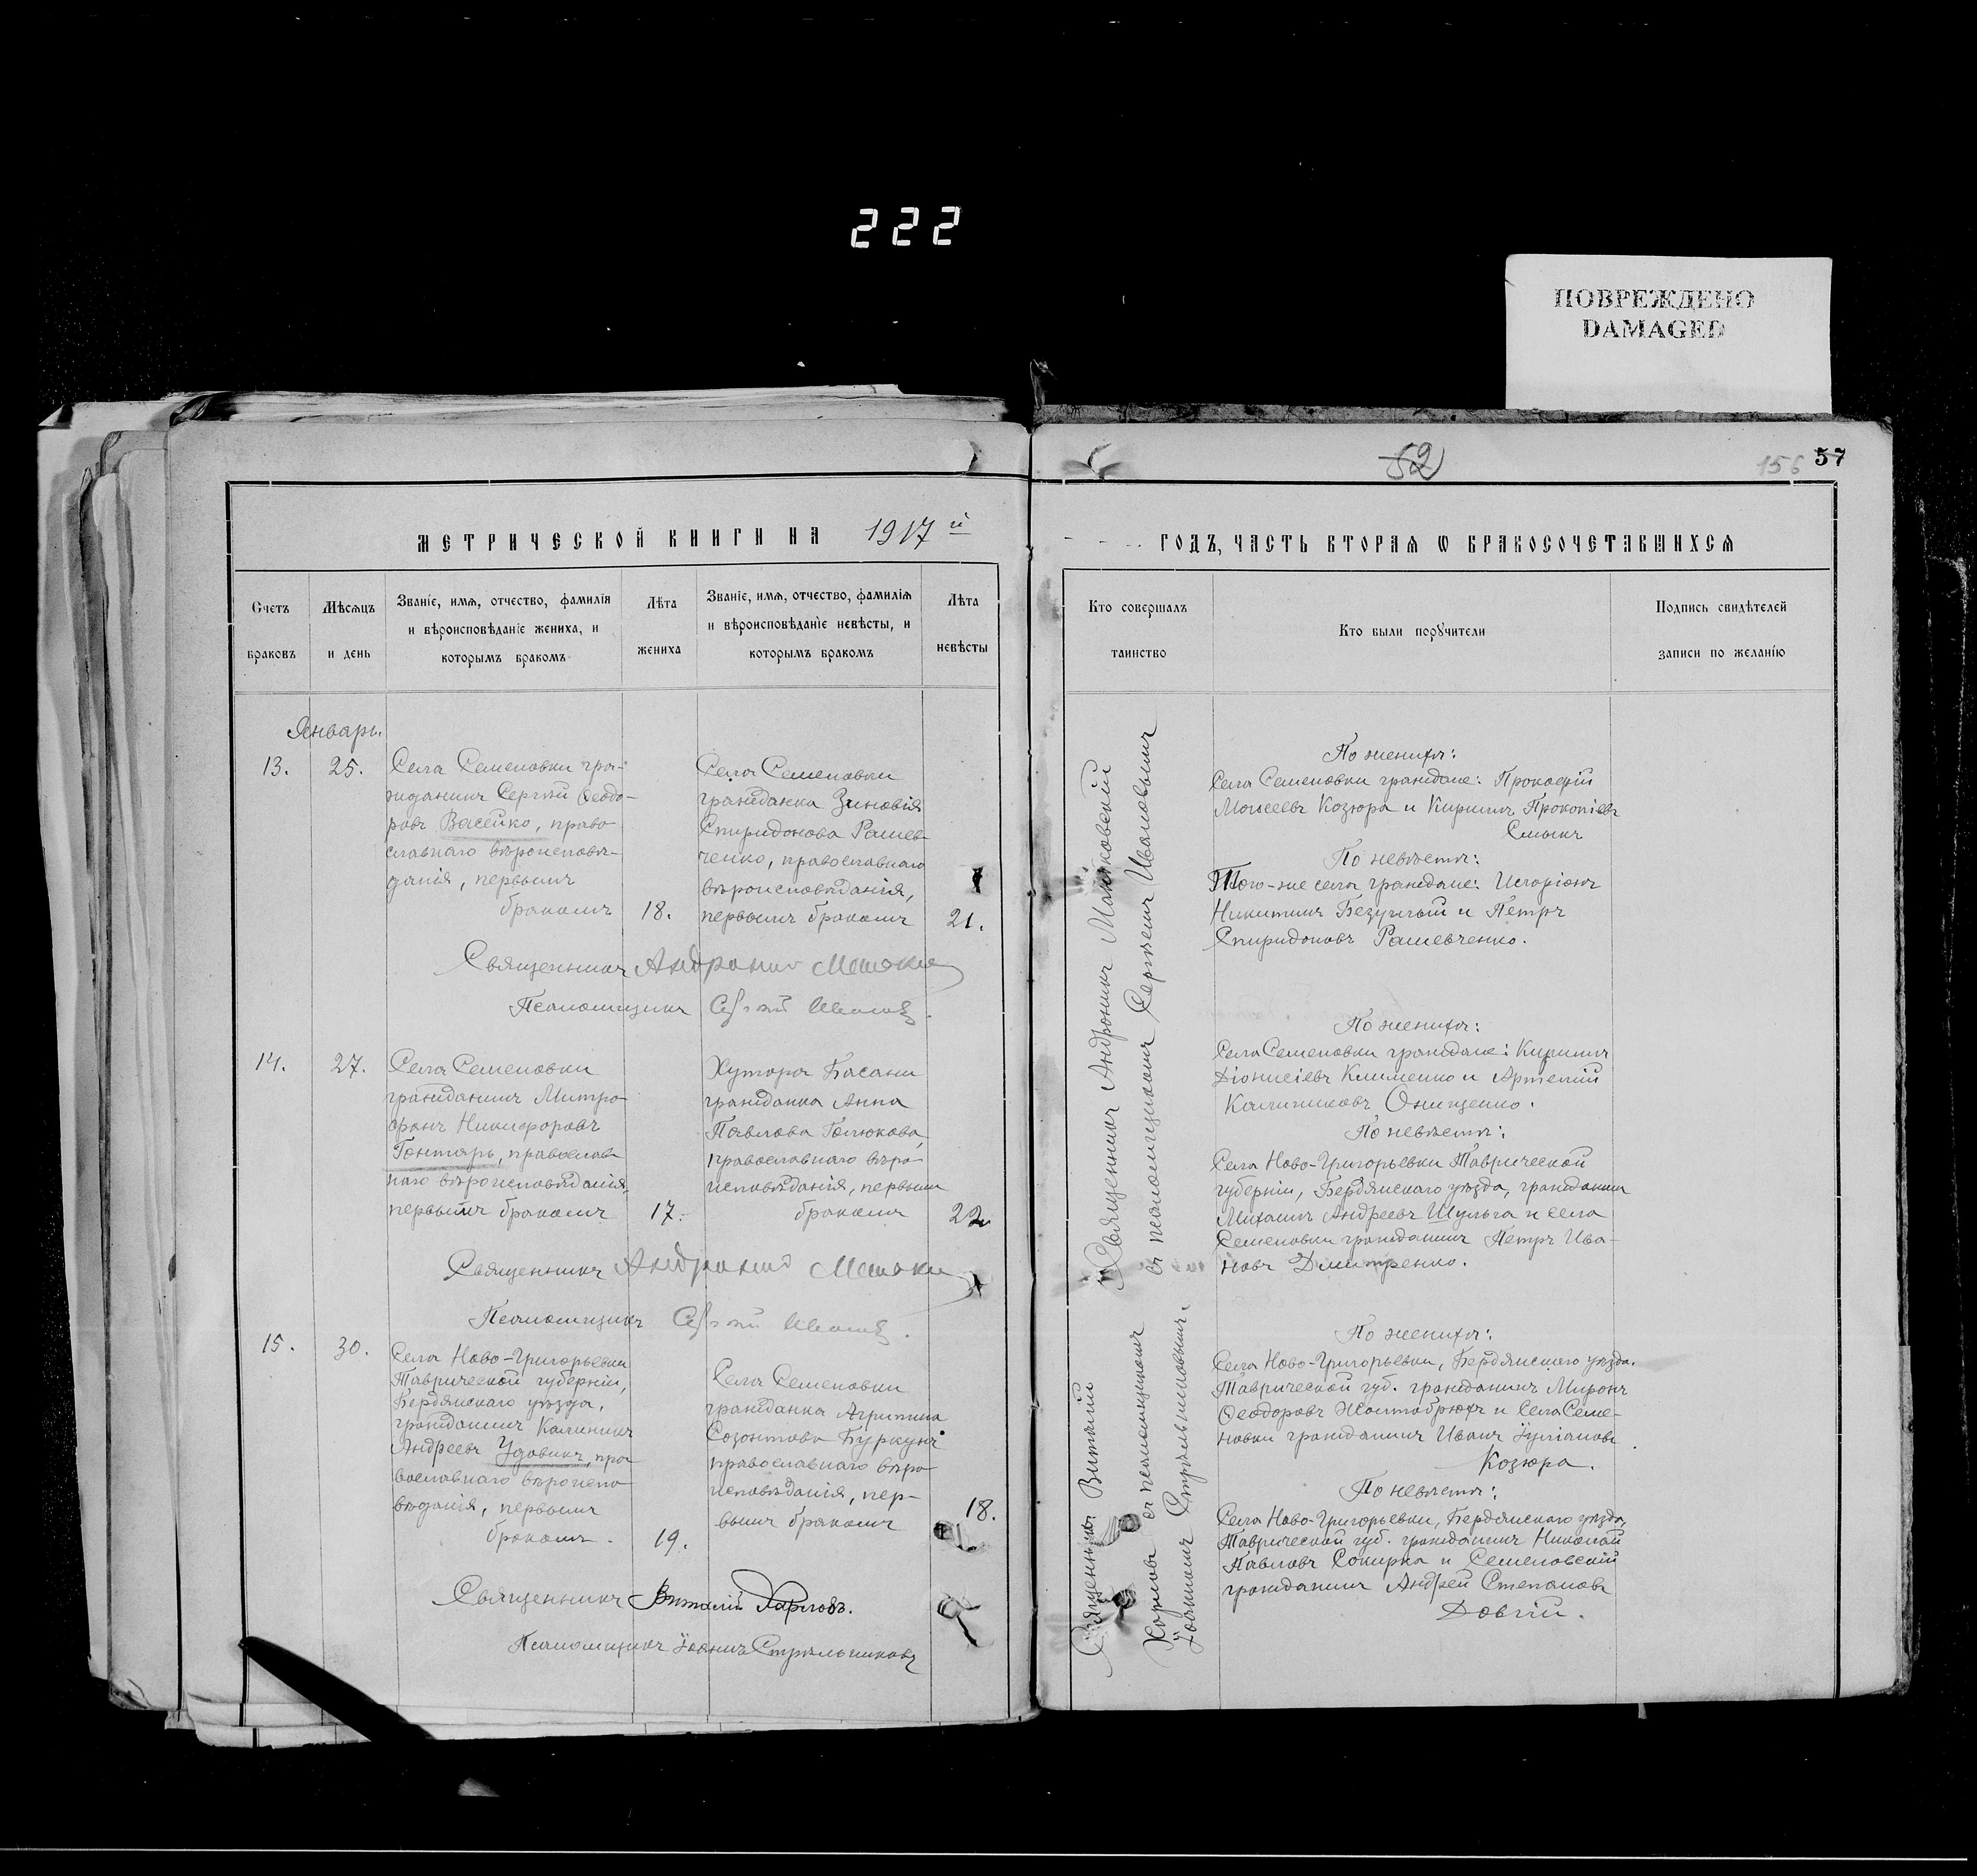 222
ПОВРЕЖДЕНО
DAMAGED
МЕТРИЧЕСКОЙ КНИГИ НА 1917 й
Счетъ
браковъ
Мѣсяцъ
и день
Званіе, имя, отчество, фамилія
и вѣроисповѣданіе жениха, и
которымъ бракомъ
Лѣта
жениха
Званіе, имя, отчество, фамилія
и вѣроисповѣданіе невѣсты, и
которымъ бракомъ
Лѣта
невѣсты
Январь.
13.
25.
Села Семеновки гра-
жданинъ Сергѣй Ѳеодо-
ровъ Васейко, право
славнаго вѣроисповѣ-
данія, первымъ
бракомъ
18.
Села Семеновки
гражданка Зиновія
Спиридонова Рашев-
ченко, православнаго
вѣроисповѣданія,
первымъ бракомъ
21.
Священникъ Андроникъ
Псаломщикъ Сергѣй Ивановъ.
14.
27.
Села Семеновки
гражданинъ Митро-
фанъ Никифоровъ
Гонтарь, православ-
наго вѣроисповѣданія,
первымъ бракомъ
17.
Хутора Басани
гражданка Анна
Павлова Голюкова,
православнаго вѣро-
исповѣданія, первымъ
бракомъ
22
Священникъ Андроникъ
Псаломщикъ Сергѣй Ивановъ.
15.
30.
Села Ново-Григорьевки
Таврической губерніи,
Бердянскаго уѣзда,
гражданинъ Калиникъ
Андреевъ Удовикъ, пра
вославнаго вѣроиспо
вѣданія, первымъ
бракомъ.
19.
Села Семеновки
гражданка Агрипина
Созонтова Буркунъ
православнаго вѣро
исповѣданія, пер-
вымъ бракомъ
18.
Священникъ Виталій Харловъ.
Псаломщикъ Іоаннъ Стрѣльниковъ
52
156 57
ГОДЪ, ЧАСТЬ ВТОРАЯ Ѡ БРАКОСОЧЕТАВШИХСЯ
Кто совершалъ
таинство
Кто были поручители
Подпись свидѣтелей
записи по желанію
Священникъ Андроникъ
съ псаломщикомъ Сергѣемъ Ивановымъ
Священникъ Виталій
Харловъ съ псаломщикомъ
Іоанномъ Стрѣльниковымъ
По женихѣ:
Села Семеновки граждане: Прокофій
Моисеевъ Козюра и Кириллъ Прокопіевъ
Смыкъ
По невѣстѣ:
Того-же села граждане: Иларіонъ
Никитинъ Безуглый и Петръ
Спиридоновъ Рашевченко.
По женихѣ:
Села Семеновки граждане: Кириллъ
Діонисіевъ Клименко и Артемій
Калиниковъ Онищенко.
По невѣстѣ:
Села Ново-Григорьевки Таврической
губерніи, Бердянскаго уѣзда, гражданинъ
Михаилъ Андреевъ Шульга и села
Семеновки гражданинъ Петръ Ива-
новъ Дмитренко.
По женихѣ:
Села Ново-Григорьевки, Бердянскаго уѣзда.
Таврической губ. гражданинъ Миронъ
Ѳеодоровъ Жовтобрюхъ и Села Семе-
новки гражданинъ Иванъ Іуліановъ
Козюра.
По невѣстѣ:
Села Ново-Григорьевки, Бердянскаго уѣзда,
Таврической губ. гражданинъ Николай
Павловъ Сокирка и Семеновскій
гражданинъ Андрей Степановъ
Довгій.